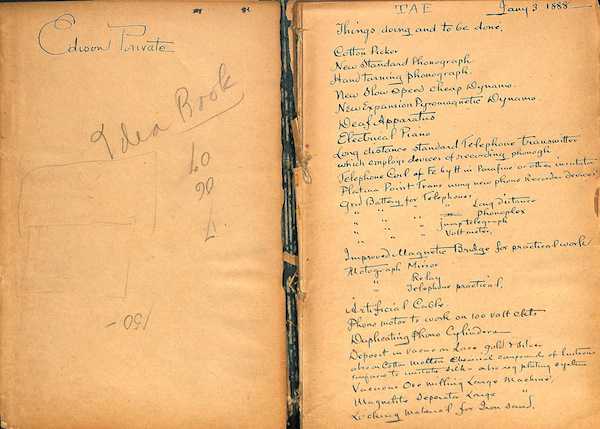 Edison Private
Idea Book
150 -
TAE Jany 3 1888
Things doing and to be done,
Cotton Picker
New Standard Phonograph
Hand turning phonograph
New Slow Speed cheap Dynamo.
New Expansion Pyromagnetic Dynamo.
Deaf Apparatus
Electrical Piano
Long distance standard Telephone transmitter
which employs devices of recording phonogh
Telephone Coil of Fe by tt in Parafine or other insulator
Platina Point Trans using new phono Recorder devices
Grd Battery for Telephones,
" " " " Long Distance
" " " Phonoplex
" " " Jump telegraph
" " " Voltmeter,
Improved Magnetic Bridge for practical work
Motograph Mirror
" Relay
" Telephone practical,
Artificial Cable
Phono motor to work on 100 volt ckts
Duplicating Phono Cylinders
Deposit in vacuo on Lace gold & silver
also on Cotton molten Chemical compounds of lustrous
surfaces to imitate silk - also reg plating system
Vacuous Ore milling Large Machine,
Magnetic Separator Large "
Locking material for Iron sand,